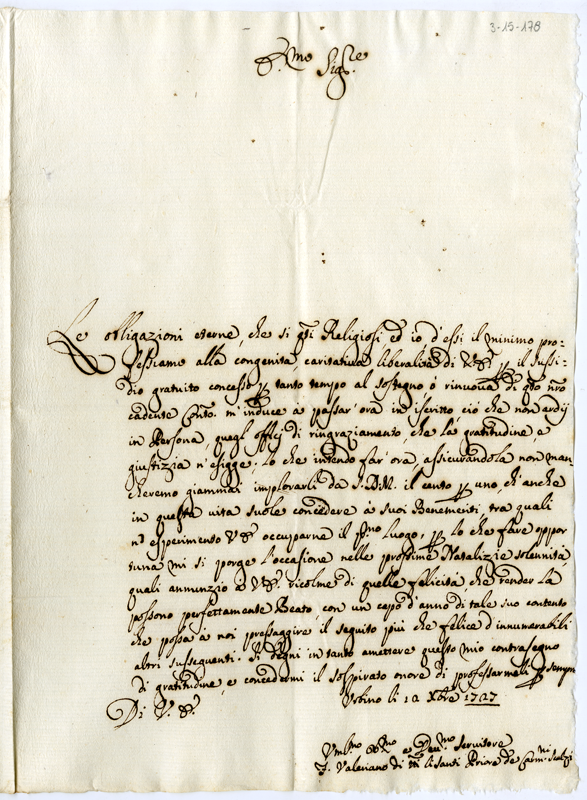 3-15-178
P.mo Sig.re
Le obligazioni eterne, che si q.ti Religiosi ed io d'essi il minimo pro-
fessiamo alla congenita caritativa liberalità di V.S. p il sussi-
dio gratuito concesso p tanto tempo al sostegno ò rinuova di q.to nr̃o
cadente Con.to. m'induce à passar' ora in iscritto ciò che non ardij
in Persona, quegl' officij di ringraziamento, che la gratitudine, e
giustizia n'esigge; Lo che intendo far' ora, assicurandola non man-
cheremo giammai implorarli da S. D. M. il cento p uno, ch'anche
in questa vita suole concedere à suoi Benemeriti, tra quali
n' esperimento V.S. occuparne il p.mo Luogo, p lo che fare oppor
tuna mi si porge l'occasione nelle prossime Natalizie solennità,
quali annunzio à V.S. ricolme di quelle felicità, che render La
possono perfettamente Beato, con un capo d'anno di tale suo contento
che possa à noi pressaggire il seguito più che felice d'innumerabili
altri sussequenti. Si degni intanto amettere questo mio contrasegno
di gratitudine, e concedermi il sospirato onore di professarmeli p sempre
Di V. S. Urbino li 12 Xbre 1727
Uml.mo Ob.mo e Dev.mo Servitore
F. Valeriano di tt.i li Santi Priore de Carm.ni Scalzi